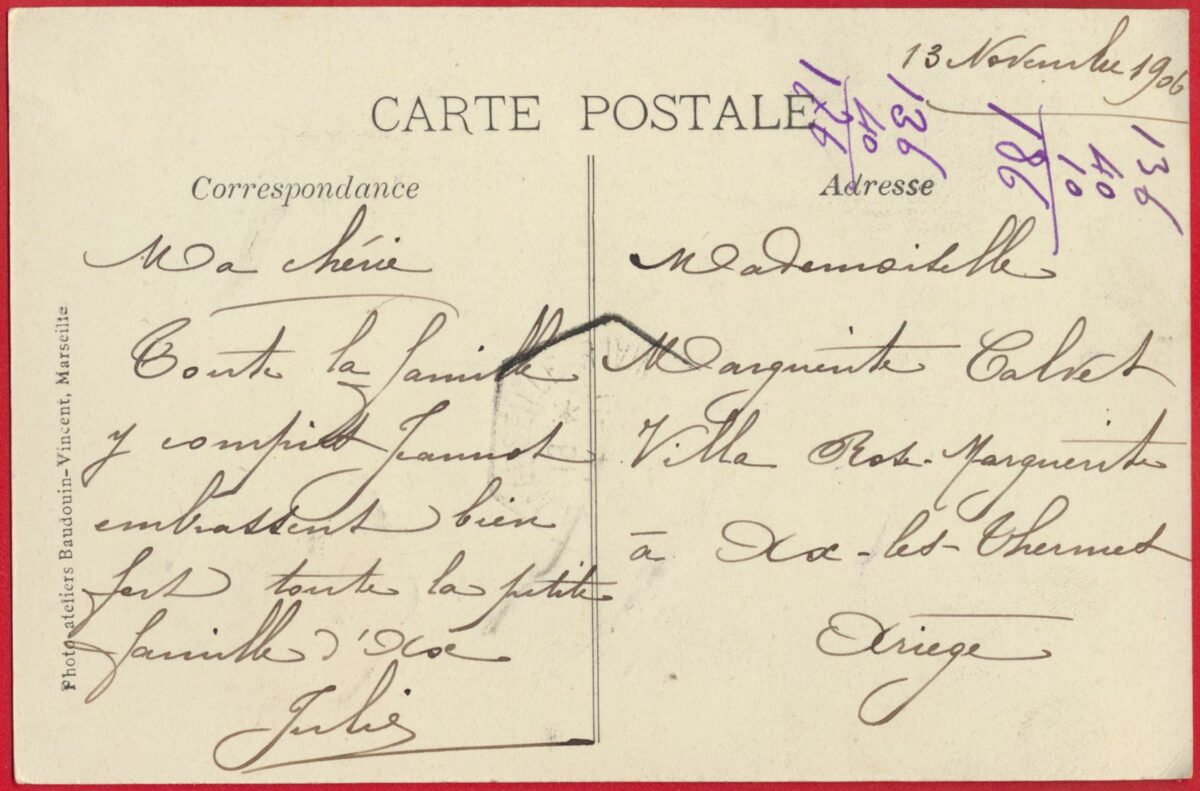 13 Novembre 1906
CARTE POSTALE
136
40
176
136
40
10
186
Correspondance
Adresse
Ma chérie
Toute la famille
y compris Jeannot
embrassent bien
fort toute la petite
famille d'Ax
Julie
Mademoiselle
Marguerite Calvet
Villa Rose-Marguerite
à Ax-les-Thermes
Ariège
Photo-ateliers Baudouin-Vincent, Marseille